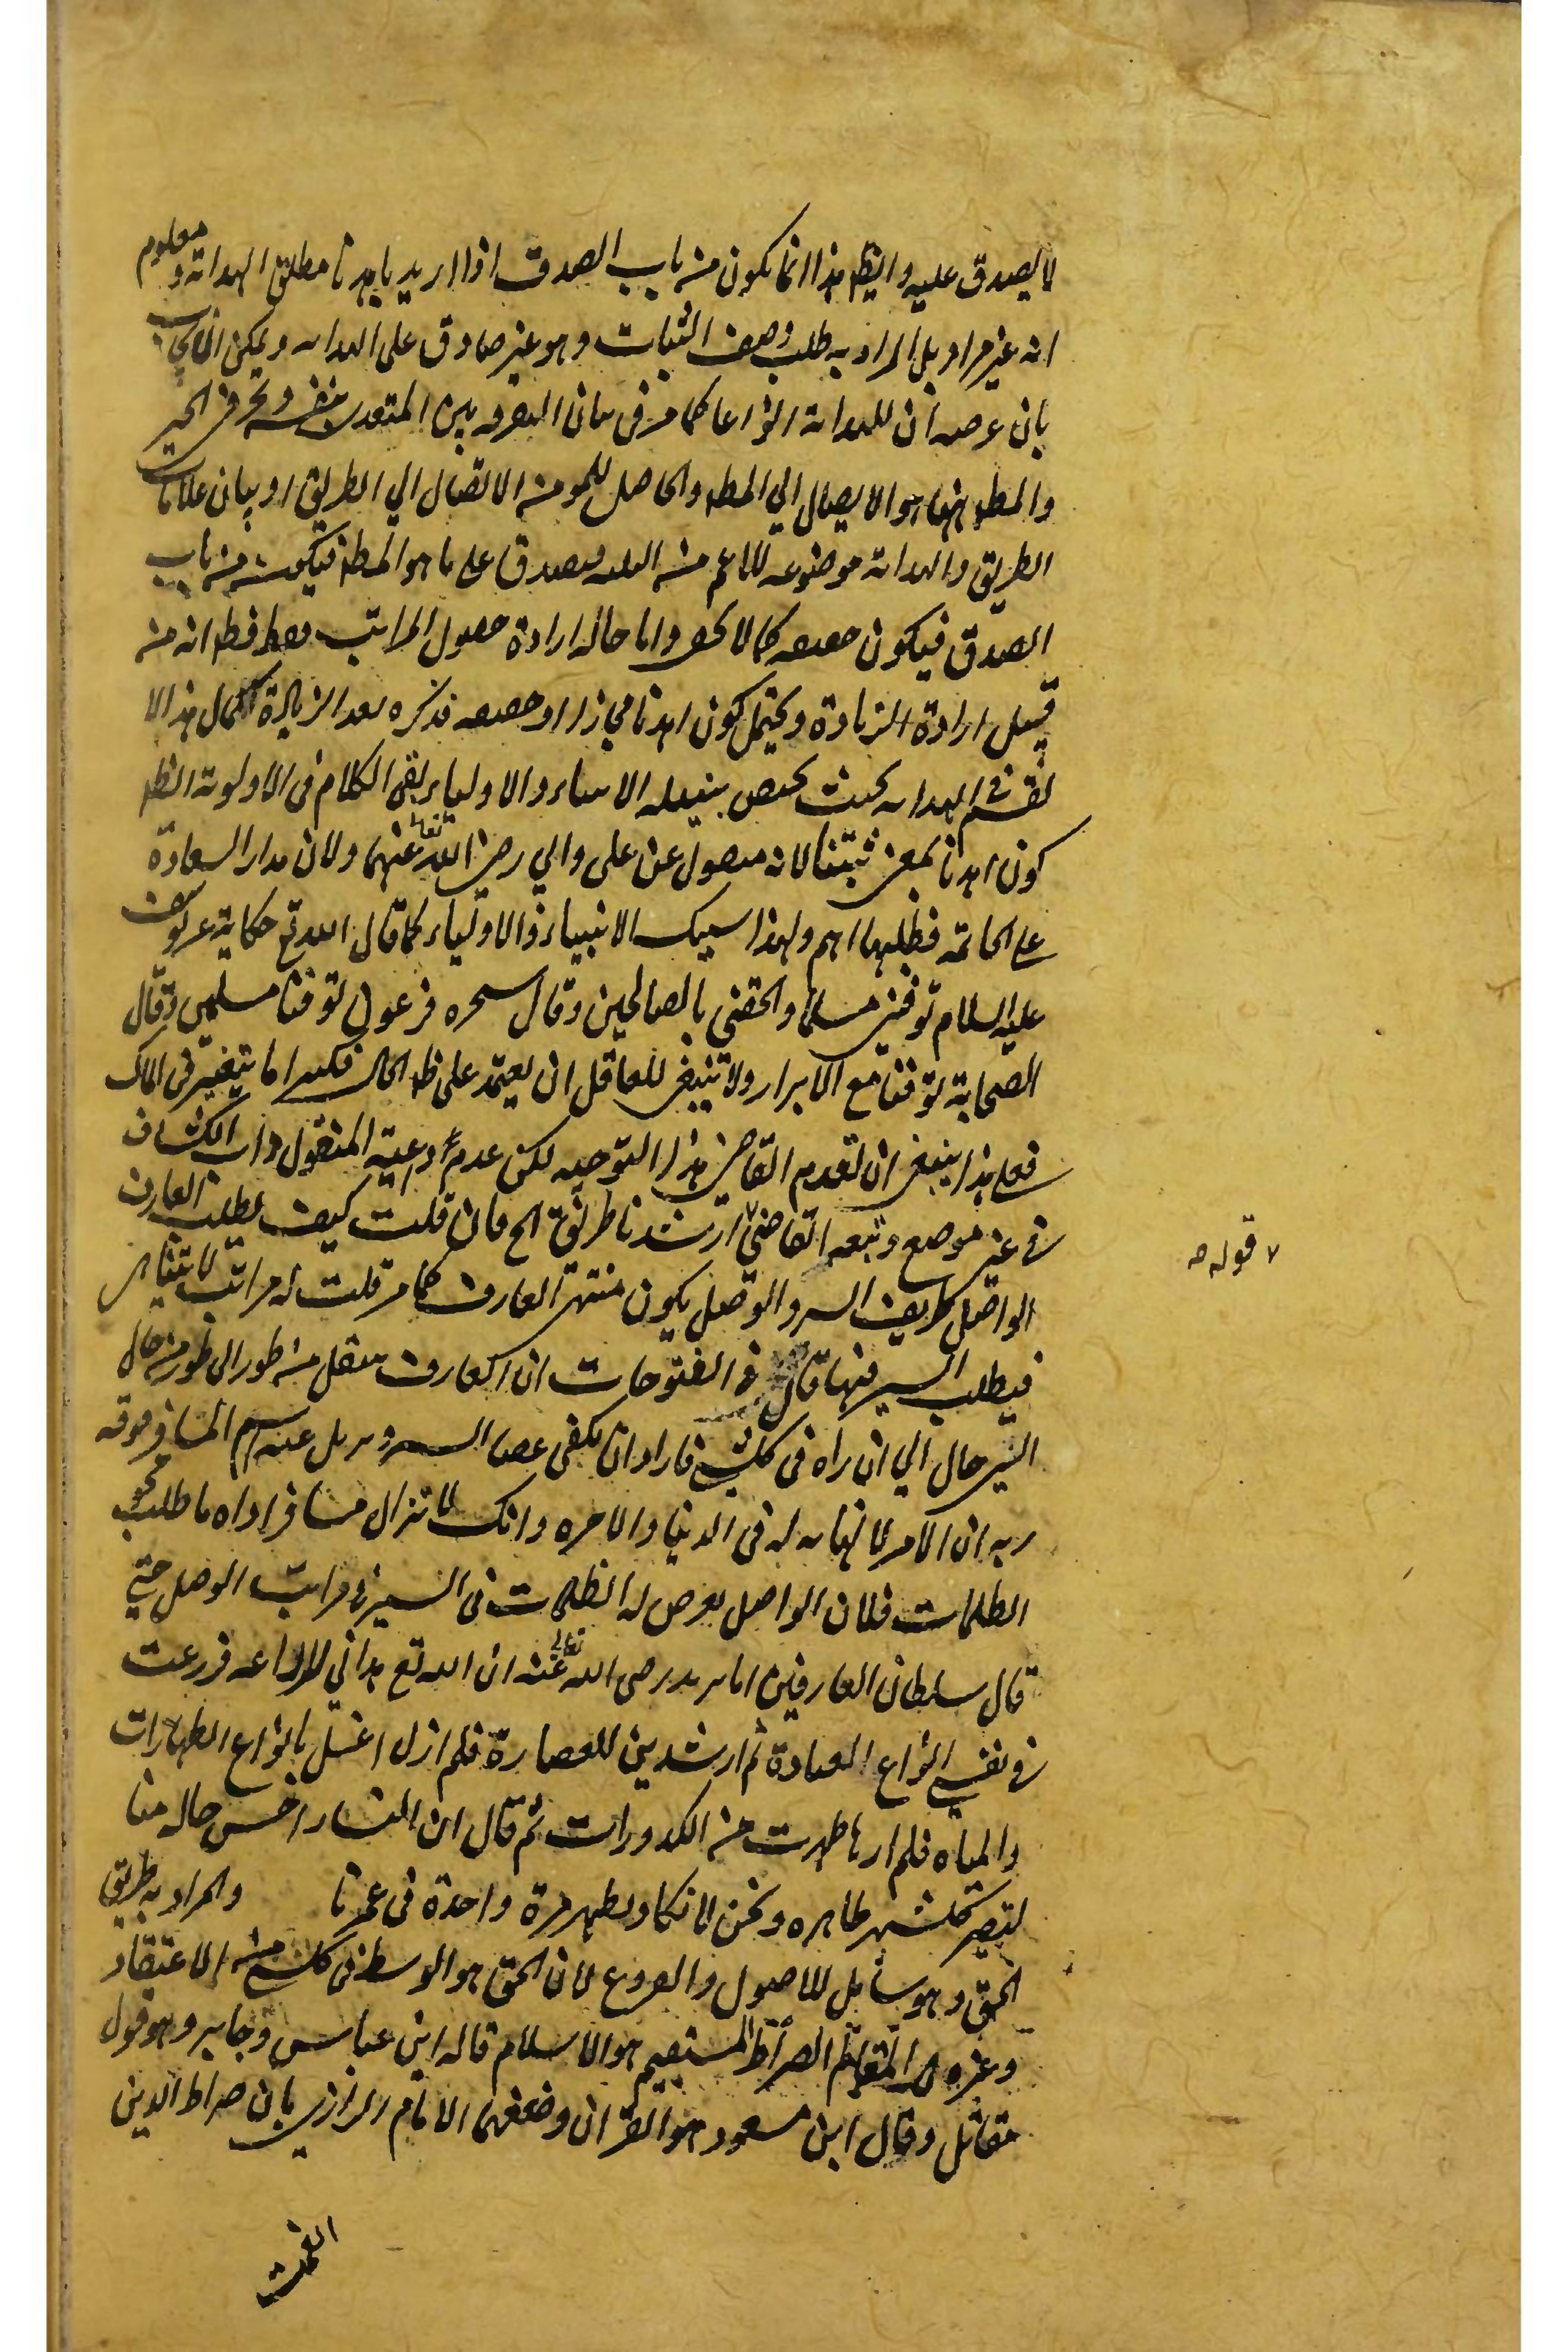 لا يصدق عليه وايظ هذا انما يكون من باب الصدق اذا اريد باهدنا مطلق الهداية ومعلوم
انه غير مراد بل المراد به طلب وصف الثبات وهو غير صادق على الهداية ويمكن ان يجاب
بان عرصه ان للهداية انواعا كما مر في بيان الفرق بين المتعدى بنفسه وبحرف الجر
والمط ههنا هو الايصال الي المط والحاصل للمومن الايصال الي الطريق او بيان علامات
الطريق والهداية موضوعة للاعم من الثلثه فيصدق على ما هو المط فيكون من باب
الصدق فيكون حقيقه كما لا يخفى واما حال ارادة حصول المراتب فقط فظ انه من
قبيل ارادة الزيادة ويحتمل كون اهدنا مجازا او حقيقه فذكره بعد الزيادة لكمال هذا الا
لقسم في الهداية بحيث يختص بنيله الانبياء والاولياء بقى الكلام في الاولوية الظ
كون اهدنا بمعنى ثبتنا لانه منقول عن على وابي رضى الله تعالى عنهما ولان مدار السعادة
على الخاتمة فطلبها اهم ولهذا سيك الانبياء والاولياء كما قال الله تع حكاية عن يوسف
عليه السلام توفني مسلما والحقني بالصالحين وقال سحره فرعون توفنا مسلمين وقال
الصحابة توفنا مع الابرار ولا ينبغى للعاقل ان يعتمد على ظ الحال فكثيرا ما يتغير في المال
فعلى هذا ينبغى ان يقدم القاضى هذا التوجيه لكن عدم رعاية المنقول داب الكشاف
في غير موضع وتبعه القاضى ٧ ارشدنا طريق الخ فان قلت كيف يطلب العارف
الواصل طريق السير والوصل يكون منتهى العارف كما مر قلت له مراتب لا يتناهى
فيطلب السير فيها قال في الفتوحات ان العارف ينتقل من طور الى طور من حال
السير حال الي ان راه في كل شئ فاراد ان يلقى عصا السير ويزيل عنه اسم المسافر فعرفه
ربه ان الامر لا نهايه له في الدنيا والاخره وانك لا تزال مسافرا واما طلب محو
الظلمات فلان الواصل يعرض له الظلمات في السير في مراتب الوصل حتى
قال سلطان العارفين ابا يزيد رضى الله تعالى عنه ان الله تع هداني للزراعه فزرعت
في نفسي انواع العبادة ثم ارشدني للقصارة فلم ازل اغسل بانواع الطهارات
والمياه فلم ارها طهرت من الكدورات ثم قال ان النساء احسن حالا منا
لتصير كل شهر طاهره ونحن لا نكاد نطهر مرة واحدة في عمرنا والمراد به طريق
الحق وهو شامل للاصول والفروع لان الحق هو الوسط في كل شئ من الاعتقاد
وغيره الصراط المستقيم هو الاسلام قاله ابن عباس وجابر وهو قول
مقاتل وقال ابن مسعود هو القران وضعفهما الامام الرازي بان صراط الذين
٧ قوله صه
انعمت